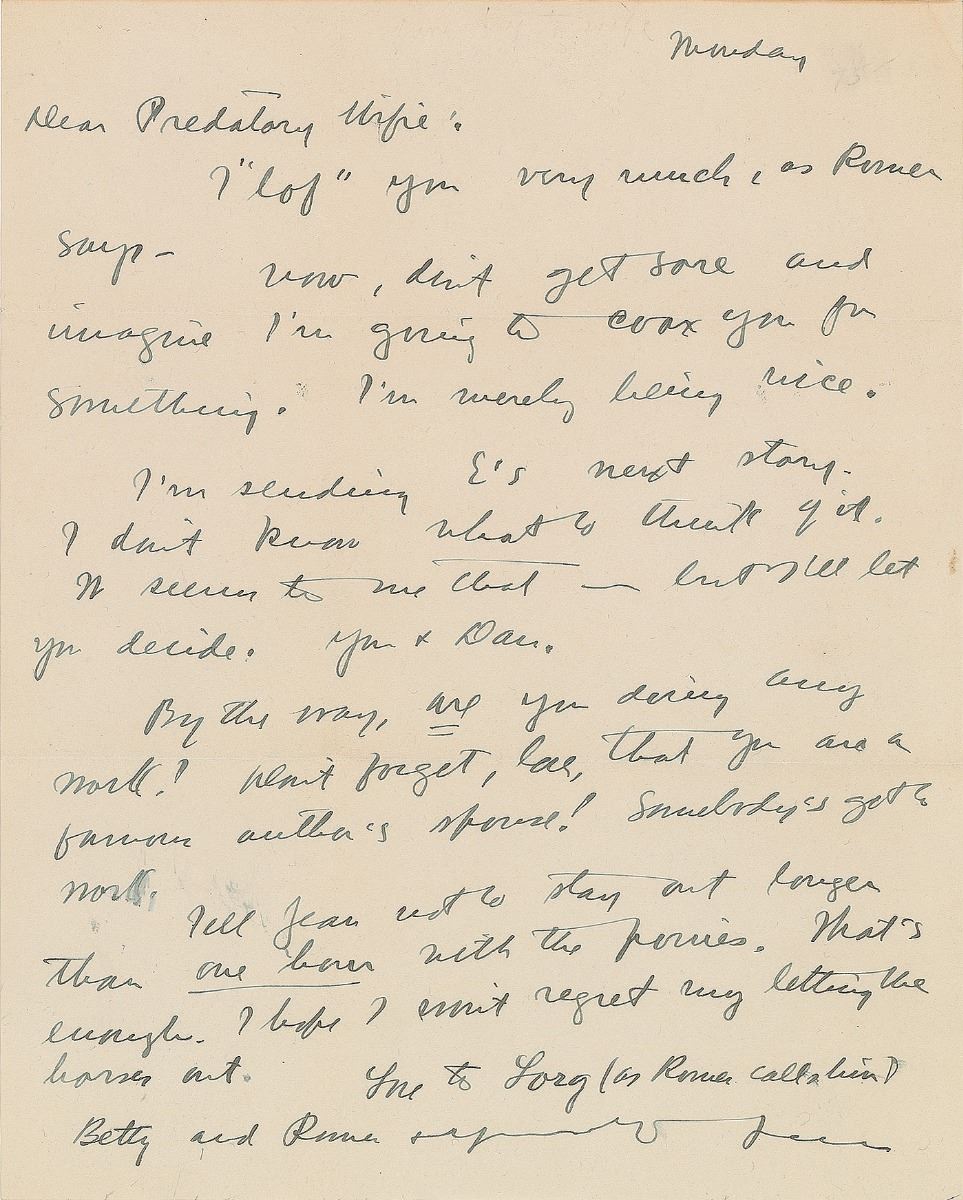 Monday
Dear Predatory Wifie:
I "lof" you very much, as Romer
says—
Now, don't get sore and
imagine I'm going to coax you for
something. I'm merely being nice.
I'm sending E's next story.
I don't know what to think of it.
It seems to me that — but I'll let
you decide. You & Dan.
By the way, are you doing any
work? Don't forget, love, that you are a
famous author's spouse! Somebody's got to
work.
Tell Jean not to stay out longer
than one hour with the ponies. That's
enough. I hope I won't regret my letting the
horses out. Love to Lorg (as Romer calls him)
Betty and Romer